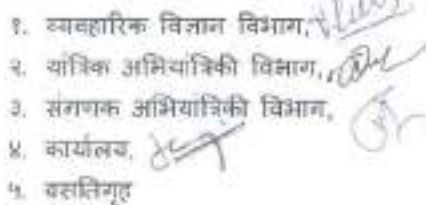 १. व्यवहारिक विज्ञान विभाग,
२. यांत्रिक अभियांत्रिकी विभाग,
३. संगणक अभियांत्रिकी विभाग,
४. कार्यालय,
५. वसतिगृह